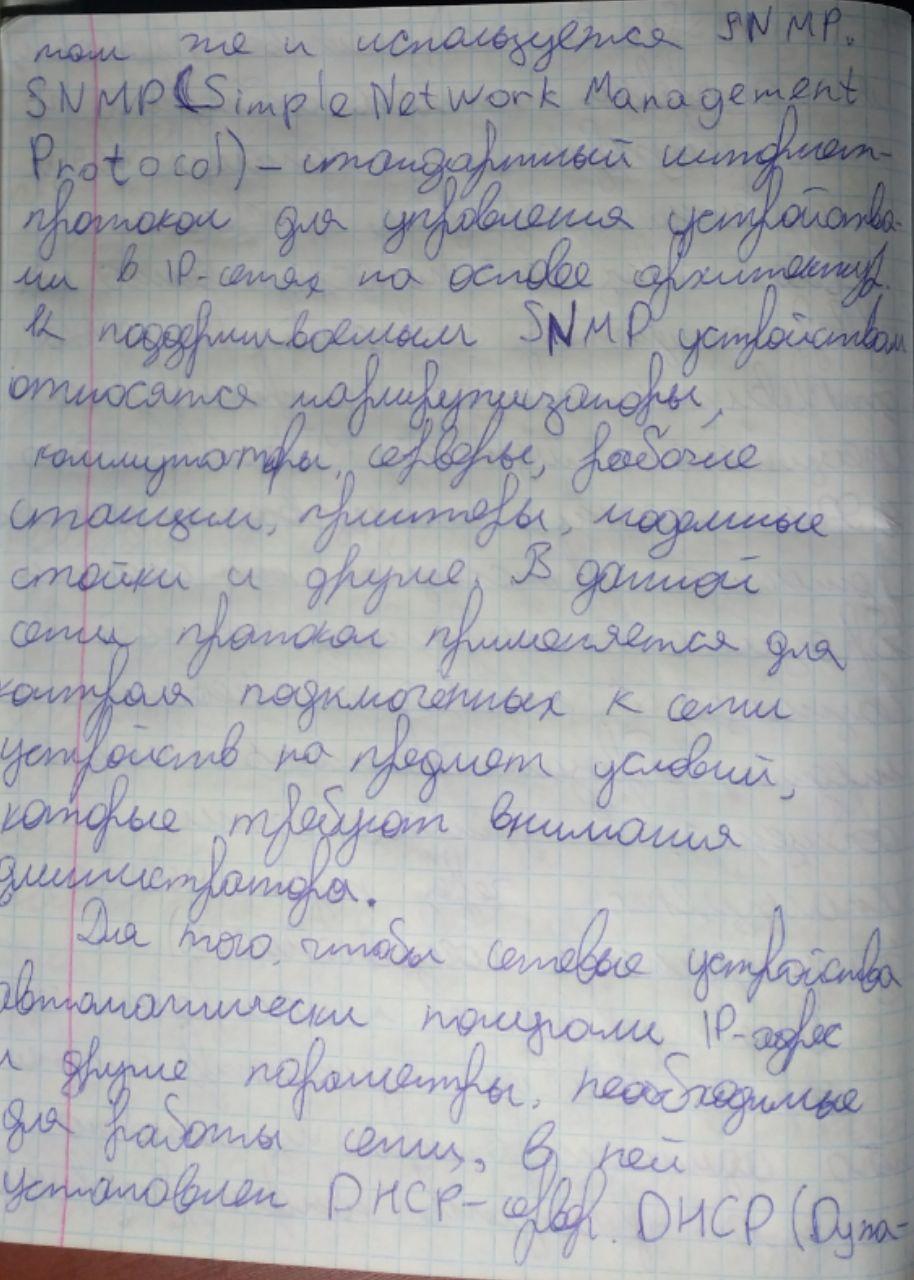 там же и используется SNMP.
SNMP (Simple Network Management
Protocol) – стандартный интернет-
протокол для управления устройства-
ми в IP-сетях на основе архитектур.
К поддерживаемым SNMP устройствам
относятся маршрутизаторы,
коммутаторы, серверы, рабочие
станции, принтеры, модемные
стойки и другие. В данной
сети протокол применяется для
контроля подключенных к сети
устройств на предмет условий,
которые требуют внимания
администратора.
Для того, чтобы сетевые устройства
автоматически получали IP-адрес
и другие параметры, необходимые
для работы сети, в ней
установлен DHCP-сервер. DHCP (Dyna-